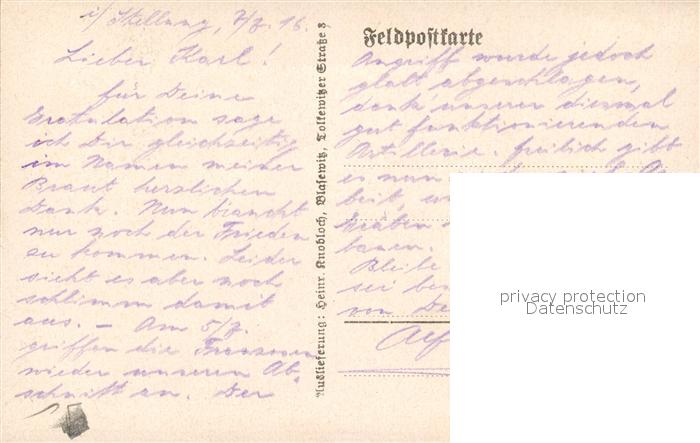 i/ Stellung, 7/2. 16.
Lieber Karl!
für Deine
Gratulation sage
ich Dir gleichzeitig
im Namen meiner
Braut herzlichen
Dank. Nun braucht
nur noch der Frieden
zu kommen. Leider
sieht es aber noch
schlimm damit
aus. – Am 5/2.
griffen die Franzosen
wieder unseren Ab-
schnitt an. Der
Auslieferung: Heinr. Knobloch, Blasewitz, Tolkewitzer Straße 8
Feldpostkarte
Angriff wurde jedoch
glatt abgeschlagen,
dank unserer diesmal
gut funktionierenden
Artillerie. Freilich gibt
es nun
beit,
Gräben
bauen.
Bleibe
sei
von
privacy protection
Datenschutz